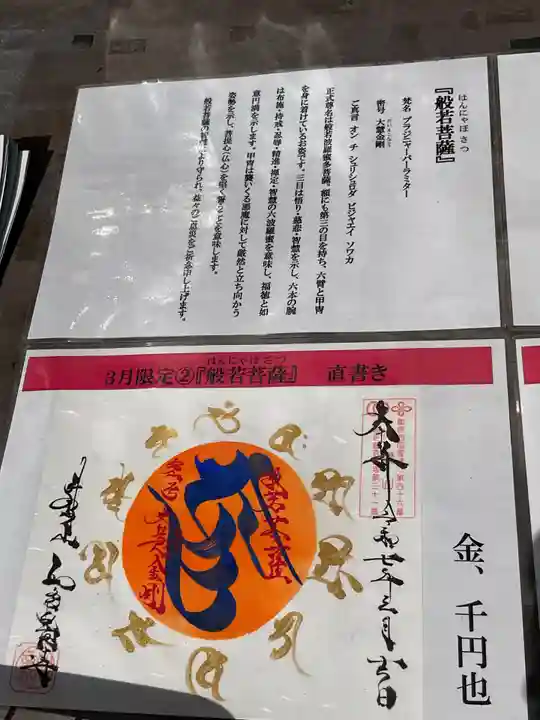 はんにゃぼさつ
『般若菩薩』
梵名 プラジニャーパーラミター
密号 大慧金剛
ご真言 オン チ シュリシュロダ ビジャエイ ソワカ
正式尊名は般若波羅蜜多菩薩。額にも第三の目を持ち、六臂と甲冑
を身に着けているお姿です。三目は悟り・慈悲・智慧を示し、六本の腕
は布施・持戒・忍辱・精進・禅定・智慧の六波羅蜜を意味し、福徳と如
意円満を示します。甲冑は襲いくる悪魔に対して厳然と立ち向かう
姿勢を示し、菩提心(仏心)を堅く誓うことを意味します。
般若菩薩の智慧により守られ、益々のご
はんにゃぼさつ
3月限定②『般若菩薩』 直書き
奉拝 令和七年三月吉日
般若菩薩
金剛
金、千円也